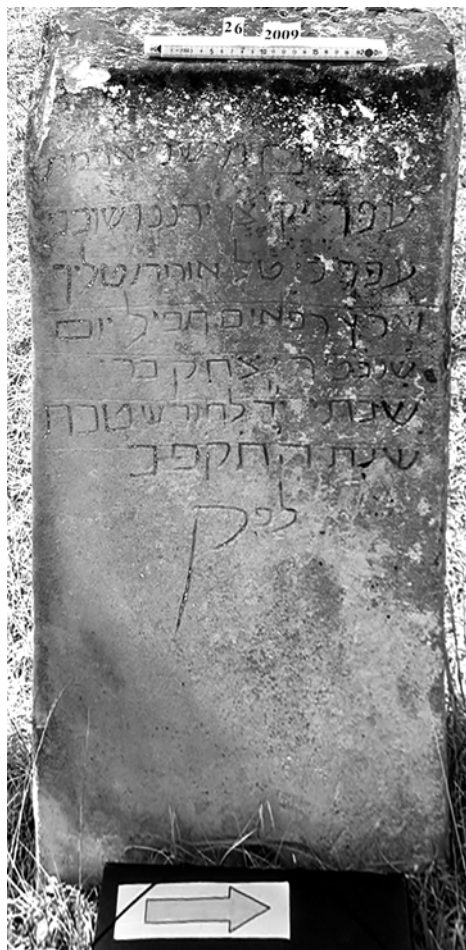 26 2009
מישני אדמת
עפר יקיצו ירננו שוכני
עפר כי טל אורות טליך
וארץ רפאים תפיל יום
שנפ׳ ר׳ יצחק בר׳
שבתי יד לחודש טבת
שנת התקפב
לפק